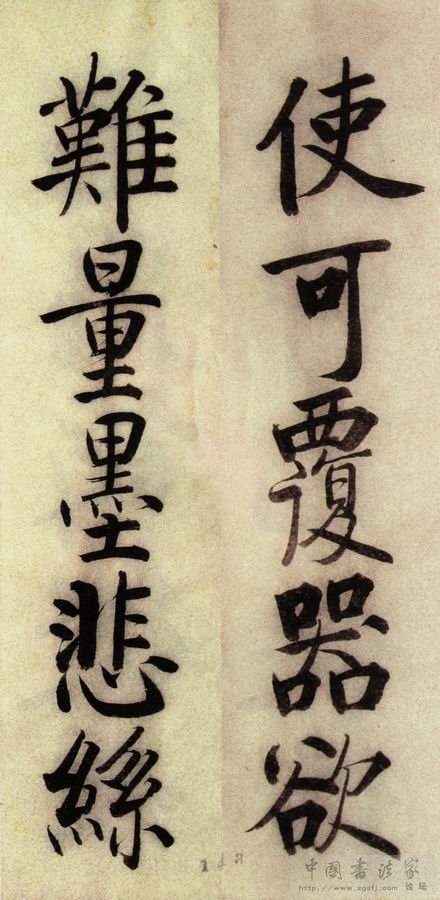 使可覆器欲
難量墨悲絲
143
中国书法家
http://www.zgsfj.com 论坛